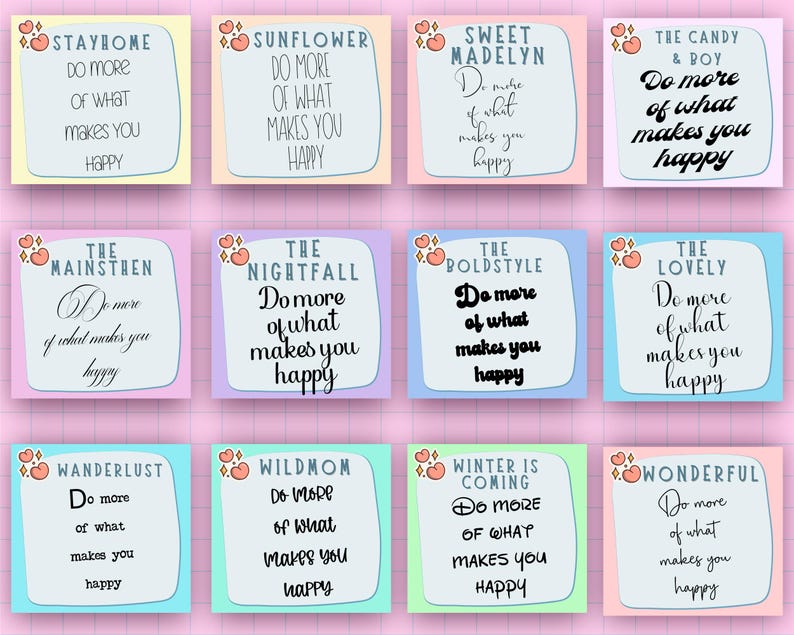 STAYHOME
DO MORE
OF WHAT
MAKES YOU
HAPPY
SUNFLOWER
DO MORE
OF WHAT
MAKES YOU
HAPPY
SWEET
MADELYN
Do more
of what
makes you
happy
THE CANDY
& BOY
Do more
of what
makes you
happy
THE
MAINSTHEN
Do more
of what makes you
happy
THE
NIGHTFALL
Do more
of what
makes you
happy
THE
BOLDSTYLE
Do more
of what
makes you
happy
THE
LOVELY
Do more
of what
makes you
happy
WANDERLUST
Do more
of what
makes you
happy
WILDMOM
DO MORE
OF WHAT
MAKES YOU
HAPPY
WINTER IS
COMING
DO MORE
OF WHAT
MAKES YOU
HAPPY
WONDERFUL
Do more
of what
makes you
happy